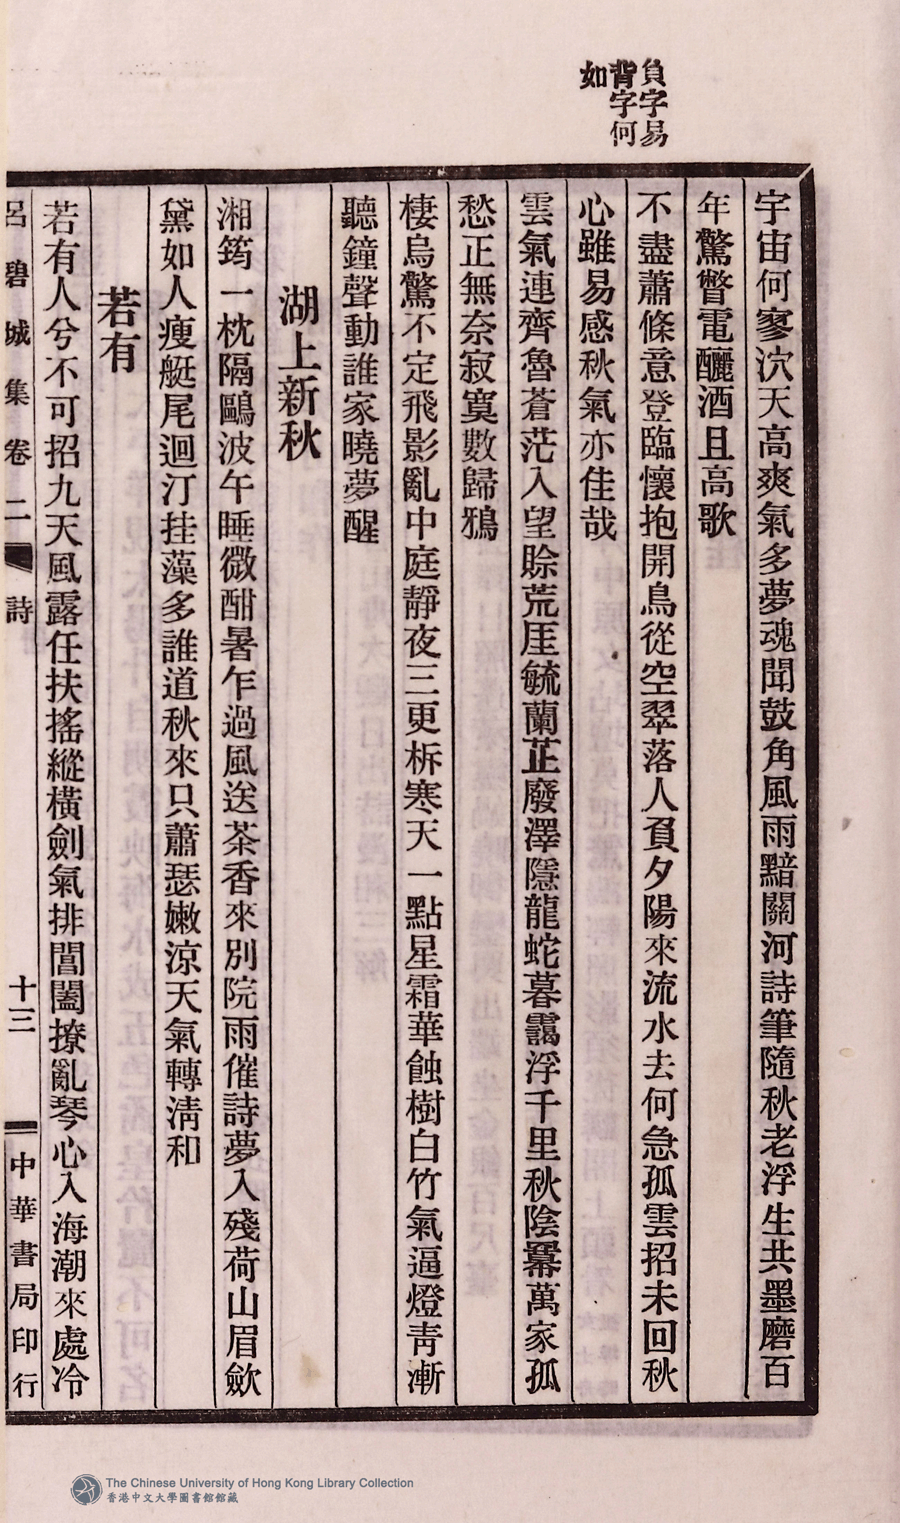 負字易
背字何
如
宇宙何寥泬天高爽氣多夢魂聞鼓角風雨黯關河詩筆隨秋老浮生共墨磨百
年驚瞥電釃酒且高歌
不盡蕭條意登臨懷抱開鳥從空翠落人負夕陽來流水去何急孤雲招未回秋
心雖易感秋氣亦佳哉
雲氣連齊魯蒼茫入望賒荒厓毓蘭芷廢澤隱龍蛇暮靄浮千里秋陰羃萬家孤
愁正無奈寂寞數歸鴉
棲烏驚不定飛影亂中庭靜夜三更柝寒天一點星霜華蝕樹白竹氣逼燈靑漸
聽鐘聲動誰家曉夢醒
湖上新秋
湘筠一枕隔鷗波午睡微酣暑乍過風送茶香來別院雨催詩夢入殘荷山眉歛
黛如人瘦艇尾迴汀挂藻多誰道秋來只蕭瑟嫩涼天氣轉淸和
若有
若有人兮不可招九天風露任扶搖縱橫劍氣排閶闔撩亂琴心入海潮來處冷
呂碧城集卷二 詩 十三 中華書局印行
The Chinese University of Hong Kong Library Collection
香港中文大學圖書館館藏